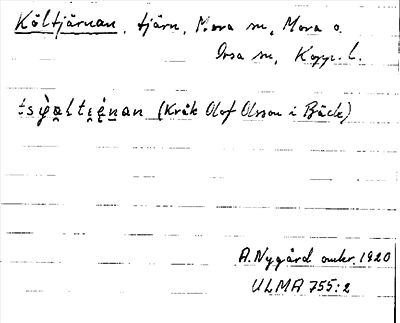 Kåltjärnan, tjärn, Mora sn, Mora o.
Orsa sn, Kopp. l.
(Kråk Olof Olsson i Bäck)
A. Nygård omkr. 1920
ULMA 755:2